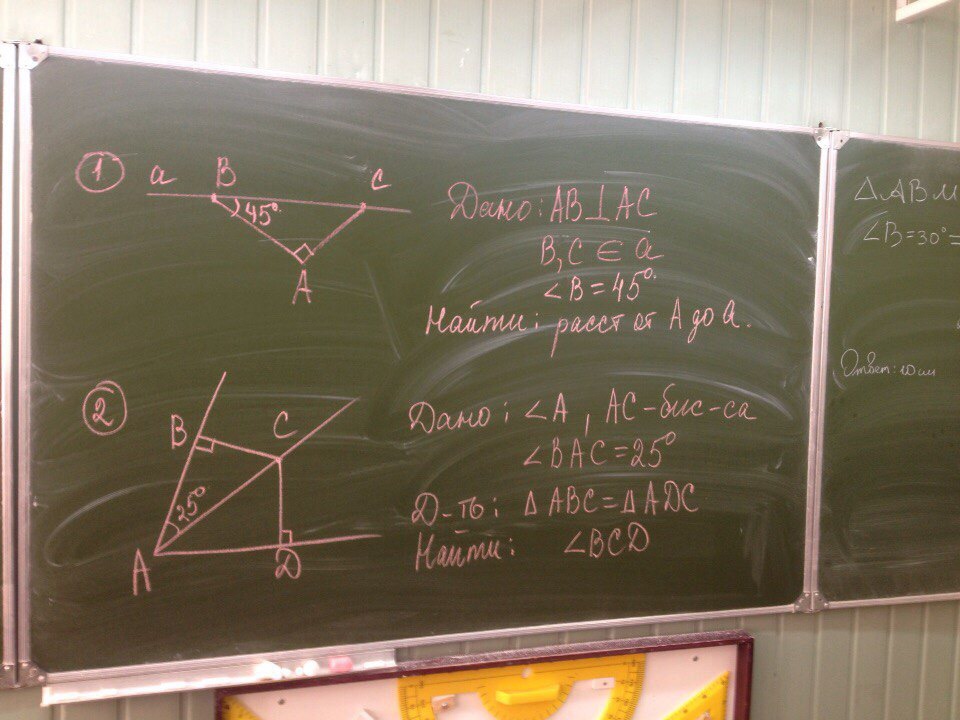 1 a B C
45°
A
Дано: AB⊥AC
B,C ∈ a
∠B=45°.
Найти: расст от A до a.
2
B C
25°
A D
Дано: ∠A, AC-бис-са
∠BAC=25°
Д-ть: △ABC=△ADC
Найти: ∠BCD
△ABM
∠B=30°=
Ответ: 10 см